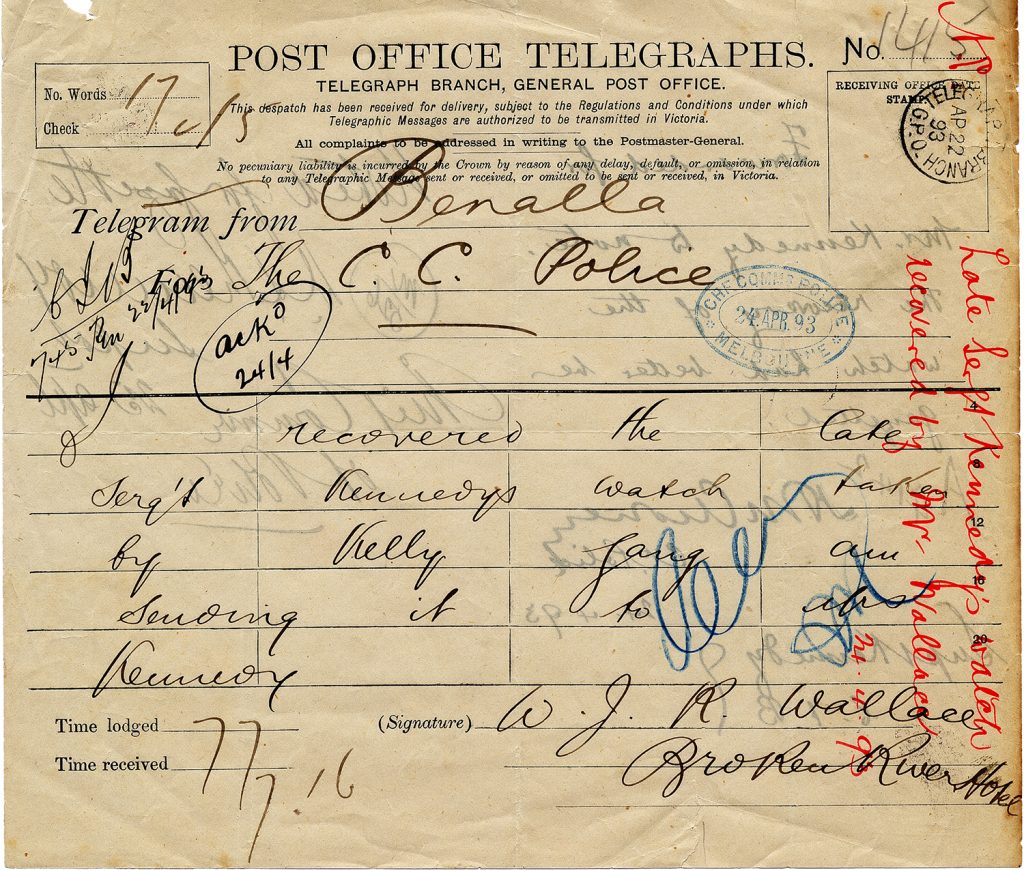 POST OFFICE TELEGRAPHS.
No. 1415
TELEGRAPH BRANCH, GENERAL POST OFFICE.
This despatch has been received for delivery, subject to the Regulations and Conditions under which
Telegraphic Messages are authorized to be transmitted in Victoria.
All complaints to be addressed in writing to the Postmaster-General.
No pecuniary liability is incurred by the Crown by reason of any delay, default, or omission, in relation
to any Telegraphic Message sent or received, or omitted to be sent or received, in Victoria.
No. Words 17
Check
RECEIVING OFFICE DATE
STAMP.
TELEGRAPH BRANCH G.P.O.
AP 22
93
Telegram from Benalla
For The C. C. Police
22/4/93
ack^d
24/4
CH. F. COMMS. OFFICE
24. APR. 93
MELBOURNE
4
I recovered the late
8
Serg't Kennedys watch taken
12
by Kelly gang am
16
sending it to Mrs
20
Kennedy
Time lodged 7
Time received 7.16
(Signature) W. J. R. Wallace
Broken River Hotel
Late Sergt Kennedy's watch
recovered by Mr. Wallace
24.4.93